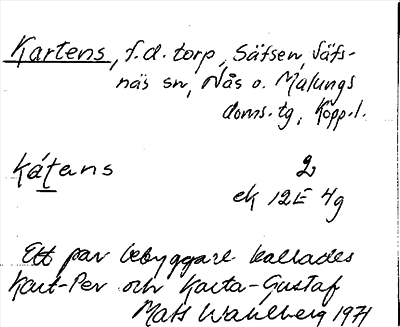 Kartens, f.d. torp, Säfsen, Säfs-
näs sn, Nås o. Malungs
doms.tg, Kopp. l.
ká̱tans 2
ek 12E 4g
Ett par bebyggare kallades
Kart-Per och Karta-Gustaf
Mats Wahlberg 1971